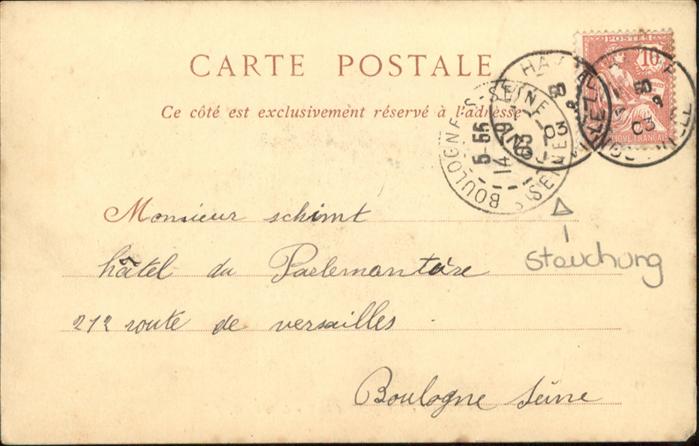 CARTE POSTALE
Ce côté est exclusivement réservé à l'adresse
POSTES
10
BOULOGNE-S-SEINE
5-55
14
03
03
Monsieur schimt
hâtel du Parlemantaire
212 route de versailles.
Boulogne seine
Stauchung